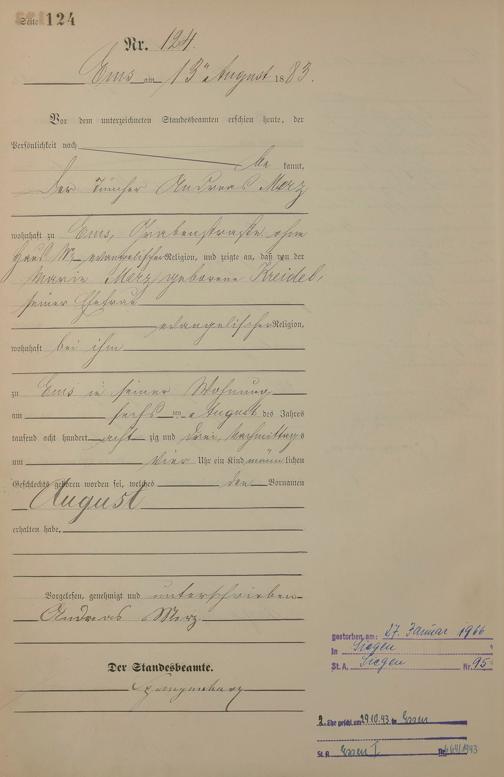 Seite 124
Nr. 124.
Ems am 13ten August 1883.
Vor dem unterzeichneten Standesbeamten erschien heute, der
Persönlichkeit nach
be kannt,
der Tüncher Andreas Merz
wohnhaft zu Ems, Grabenstraße ohne
Haus Nr. evangelischer Religion, und zeigte an, daß von der
Marie Merz, geborene Kreidel,
seiner Ehefrau
evangelischer Religion,
wohnhaft bei ihm
zu Ems in seiner Wohnung
am sechs ten August des Jahres
tausend acht hundert acht zig und drei, Nachmittags
um vier Uhr ein Kind männ lichen
Geschlechts geboren worden sei, welches den Vornamen
August
erhalten habe.
Vorgelesen, genehmigt und unterschrieben
Andreas Merz
Der Standesbeamte.
gestorben am: 27. Januar 1966
in Siegen
St.A. Siegen Nr. 95
2. Ehe geschl. am 29.10.43 in Essen
St.A. Essen I Nr.